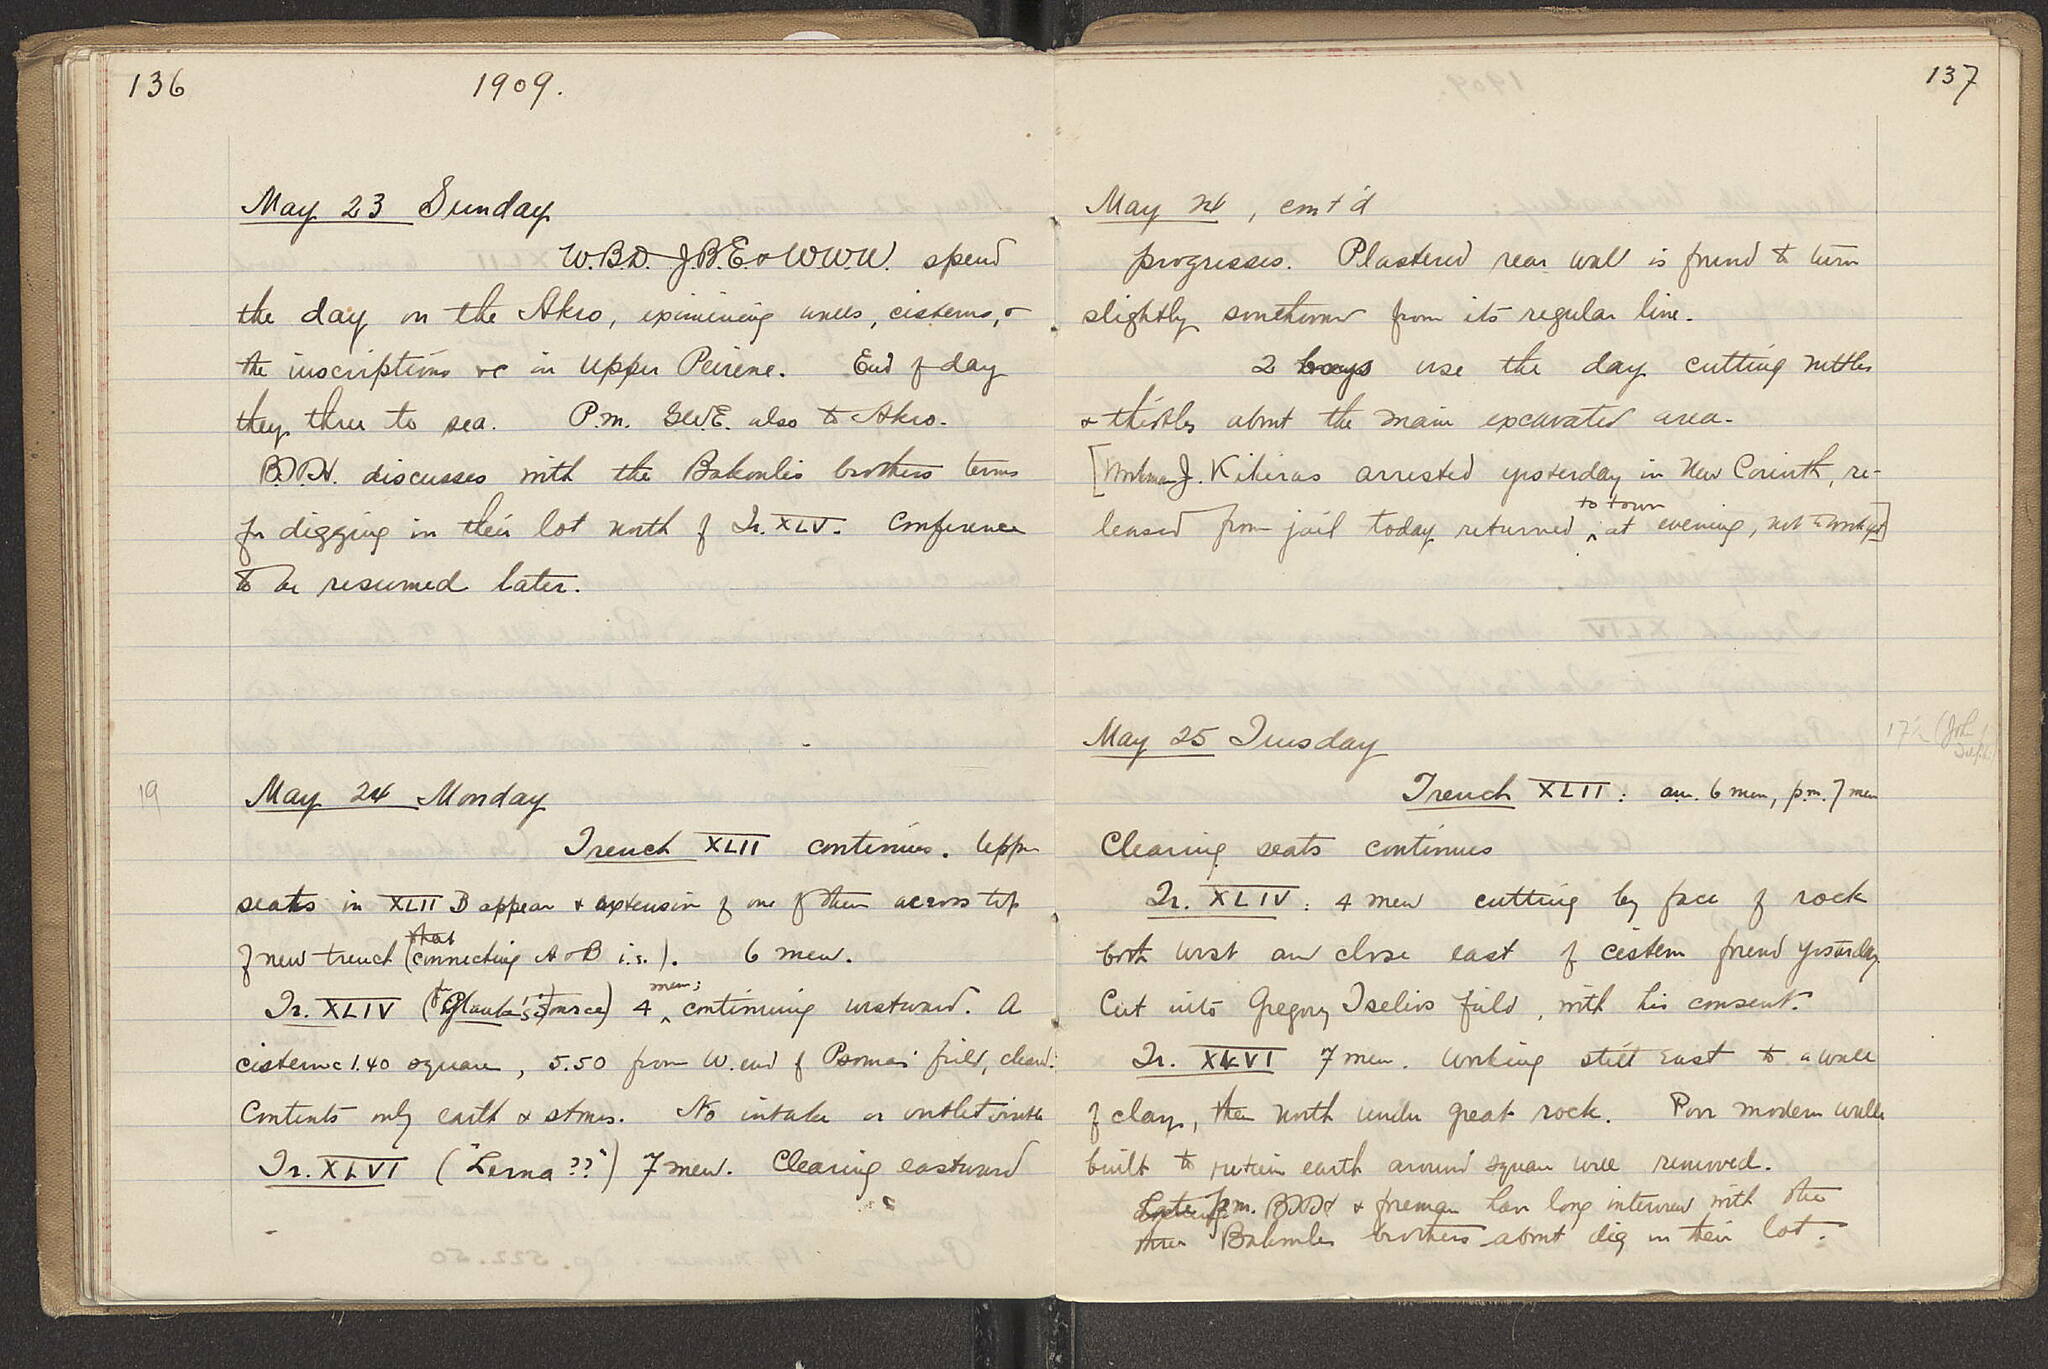 136
1909.
May 23 Sunday
W.B.D. J.B.E. & W.W.W. spend
the day on the Akro, examining walls, cisterns, &
the inscriptions &c in Upper Peirene. End of day
they three to sea. P.m. G.W.E. also to Akro.
B.H.H. discusses with the Bakoulis brothers terms
for digging in their lot north of Tr. XLV. Conference
to be resumed later.
19
May 24 Monday
Trench XLII continues. Upper
seats in XLII B appear & extension of one of them across top
of new trench (that connecting A & B i.s.). 6 men.
Tr. XLIV ("Glauke's" source) 4 men; continuing westward. A
cistern c 1.40 square, 5.50 from W. end of Psomas' field, clear'd.
Contents only earth & stones. No intake or outlet visible
Tr. XLVI ("Lerna??") 7 men. Clearing eastward
137
May 24, cont'd
progresses. Plastered rear wall is found to turn
slightly southward from its regular line.
2 boys use the day cutting nettles
& thistles about the main excavated area.
[Workman J. Kikiras arrested yesterday in New Corinth, re-
leased from jail today returned to town at evening, not to work yet]
May 25 Tuesday
17½ (John
Trench XLII: am. 6 men, p.m. 7 men
Clearing seats continues
Tr. XLIV: 4 men cutting by face of rock
both west and close east of cistern found yesterday.
Cut into Gregory Tselios field, with his consent.
Tr. XLVI 7 men. Working still east to a wall
of clay, then north under great rock. Poor modern walls
built to retain earth around square well removed.
Late p.m. B.H.H. & foreman have long interview with the
three Bakoulis brothers about dig in their lot.